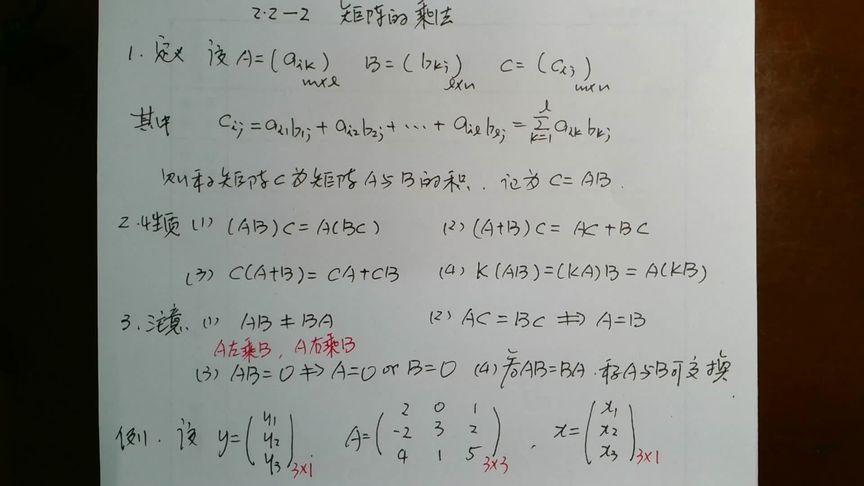 2.2-2 矩阵的乘法
1. 定义 设 A=(aik)m×l B=(bkj)l×n C=(cij)m×n
其中 cij=ai1b1j+ai2b2j+⋯+ailblj=∑(k=1→l) aikbkj
则称矩阵C为矩阵A与B的积. 记为 C=AB.
2.性质 (1) (AB)C=A(BC) (2) (A+B)C=AC+BC
(3) C(A+B)=CA+CB (4) K(AB)=(KA)B=A(KB)
3.注意. (1) AB≠BA (2) AC=BC ⇏ A=B
A左乘B, A右乘B
(3) AB=0 ⇏ A=0 or B=0 (4) 若AB=BA.称A与B可交换
例1. 设 y=(y1 y2 y3)3×1. A=(2 0 1 -2 3 2 4 1 5)3×3, x=(x1 x2 x3)3×1